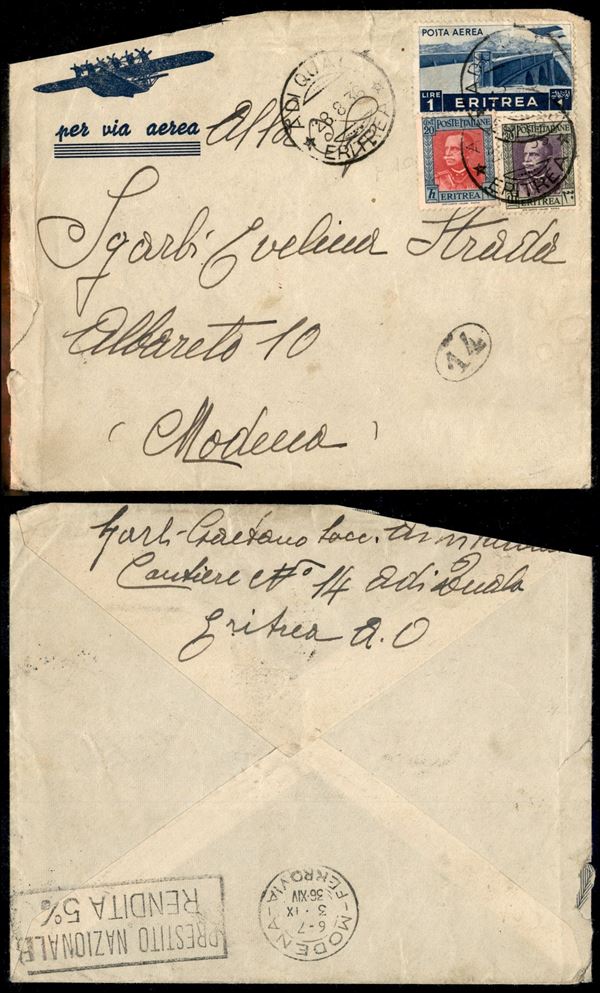 per via aerea
Alla
ADI QUAL
28.8.36
ERITREA
POSTA AEREA
LIRE
1
ERITREA
1
CENT
20
POSTE ITALIANE
ERITREA
POSTE ITALIANE
ERITREA
ERITREA
Sgarbi Evelina Strada
Albareto 10
14
(Modena)
Gaetano Socc.
Cantiere N° 14 Adi Quala
Eritrea A.O
PRESTITO NAZIONALE
RENDITA 5%
MODENA - FERROVIA
6-7
3.IX
36·XIV